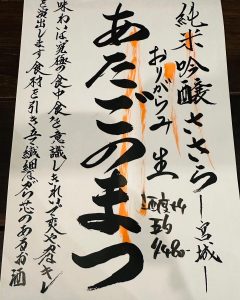 純米吟醸ささら ー宮城ー
おりがらみ 生
酒度+4
1480-
あたごのまつ
味わいは究極の食中酒を意識しきれいで爽やかなキレ
を演出します食材を引き立て繊細ながら芯のあるお酒